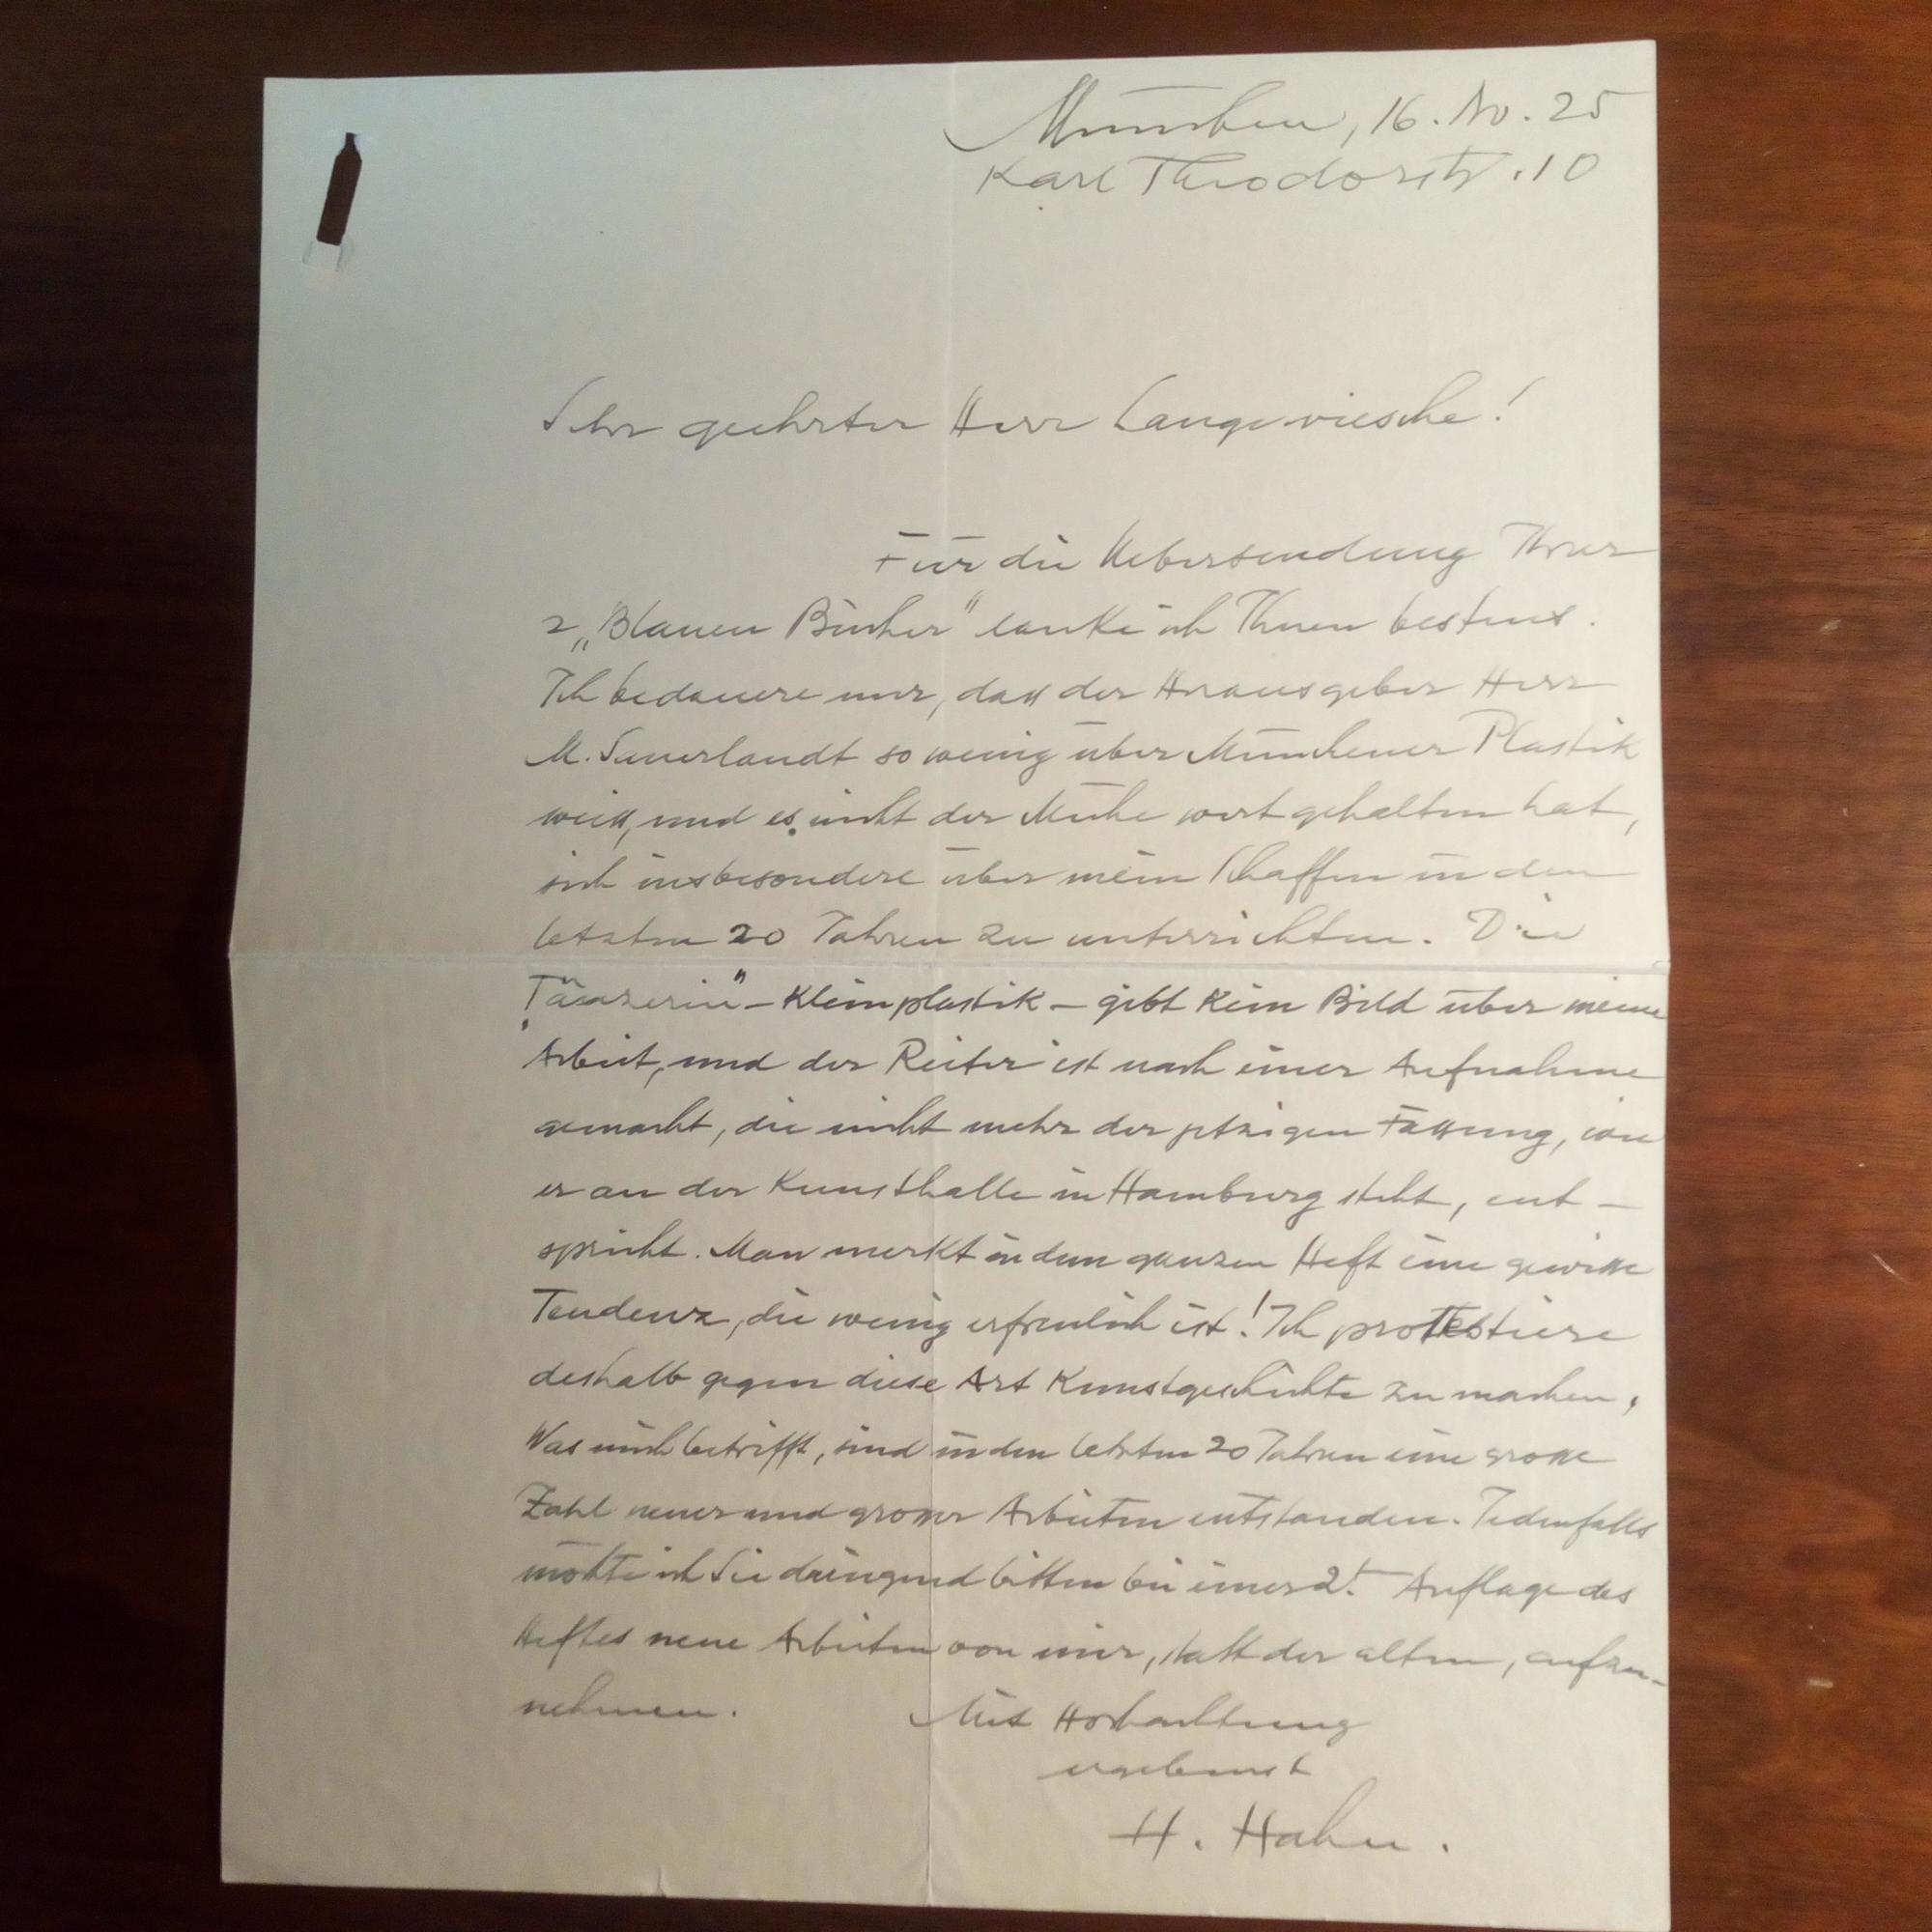 München, 16. No. 25
Karl Theodorstr. 10
Sehr geehrter Herr Langewiesche!
Für die Uebersendung Ihrer
2 „Blauen Bücher“ danke ich Ihnen bestens.
Ich bedauere nur, dass der Herausgeber Herr
M. Sauerlandt so wenig über Münchener Plastik
weiss, und es nicht der Mühe wert gehalten hat,
sich insbesondere über mein Schaffen in den
letzten 20 Jahren zu unterrichten. Die
„Tänzerin“ – Kleinplastik – gibt kein Bild über meine
Arbeit, und der Reiter ist nach einer Aufnahme
gemacht, die nicht mehr der jetzigen Fassung, wie
er an der Kunsthalle in Hamburg steht, ent-
spricht. Man merkt in dem ganzen Heft eine gewisse
Tendenz, die wenig erfreulich ist! Ich protestiere
deshalb gegen diese Art Kunstgeschichte zu machen.
Was mich betrifft, sind in den letzten 20 Jahren eine grosse
Zahl neuer und grosser Arbeiten entstanden. Jedenfalls
möchte ich Sie dringend bitten bei einer 2t. Auflage des
Heftes neue Arbeiten von mir, statt der alten, aufzu-
nehmen. Mit Hochachtung
ergebenst
H. Hahn.